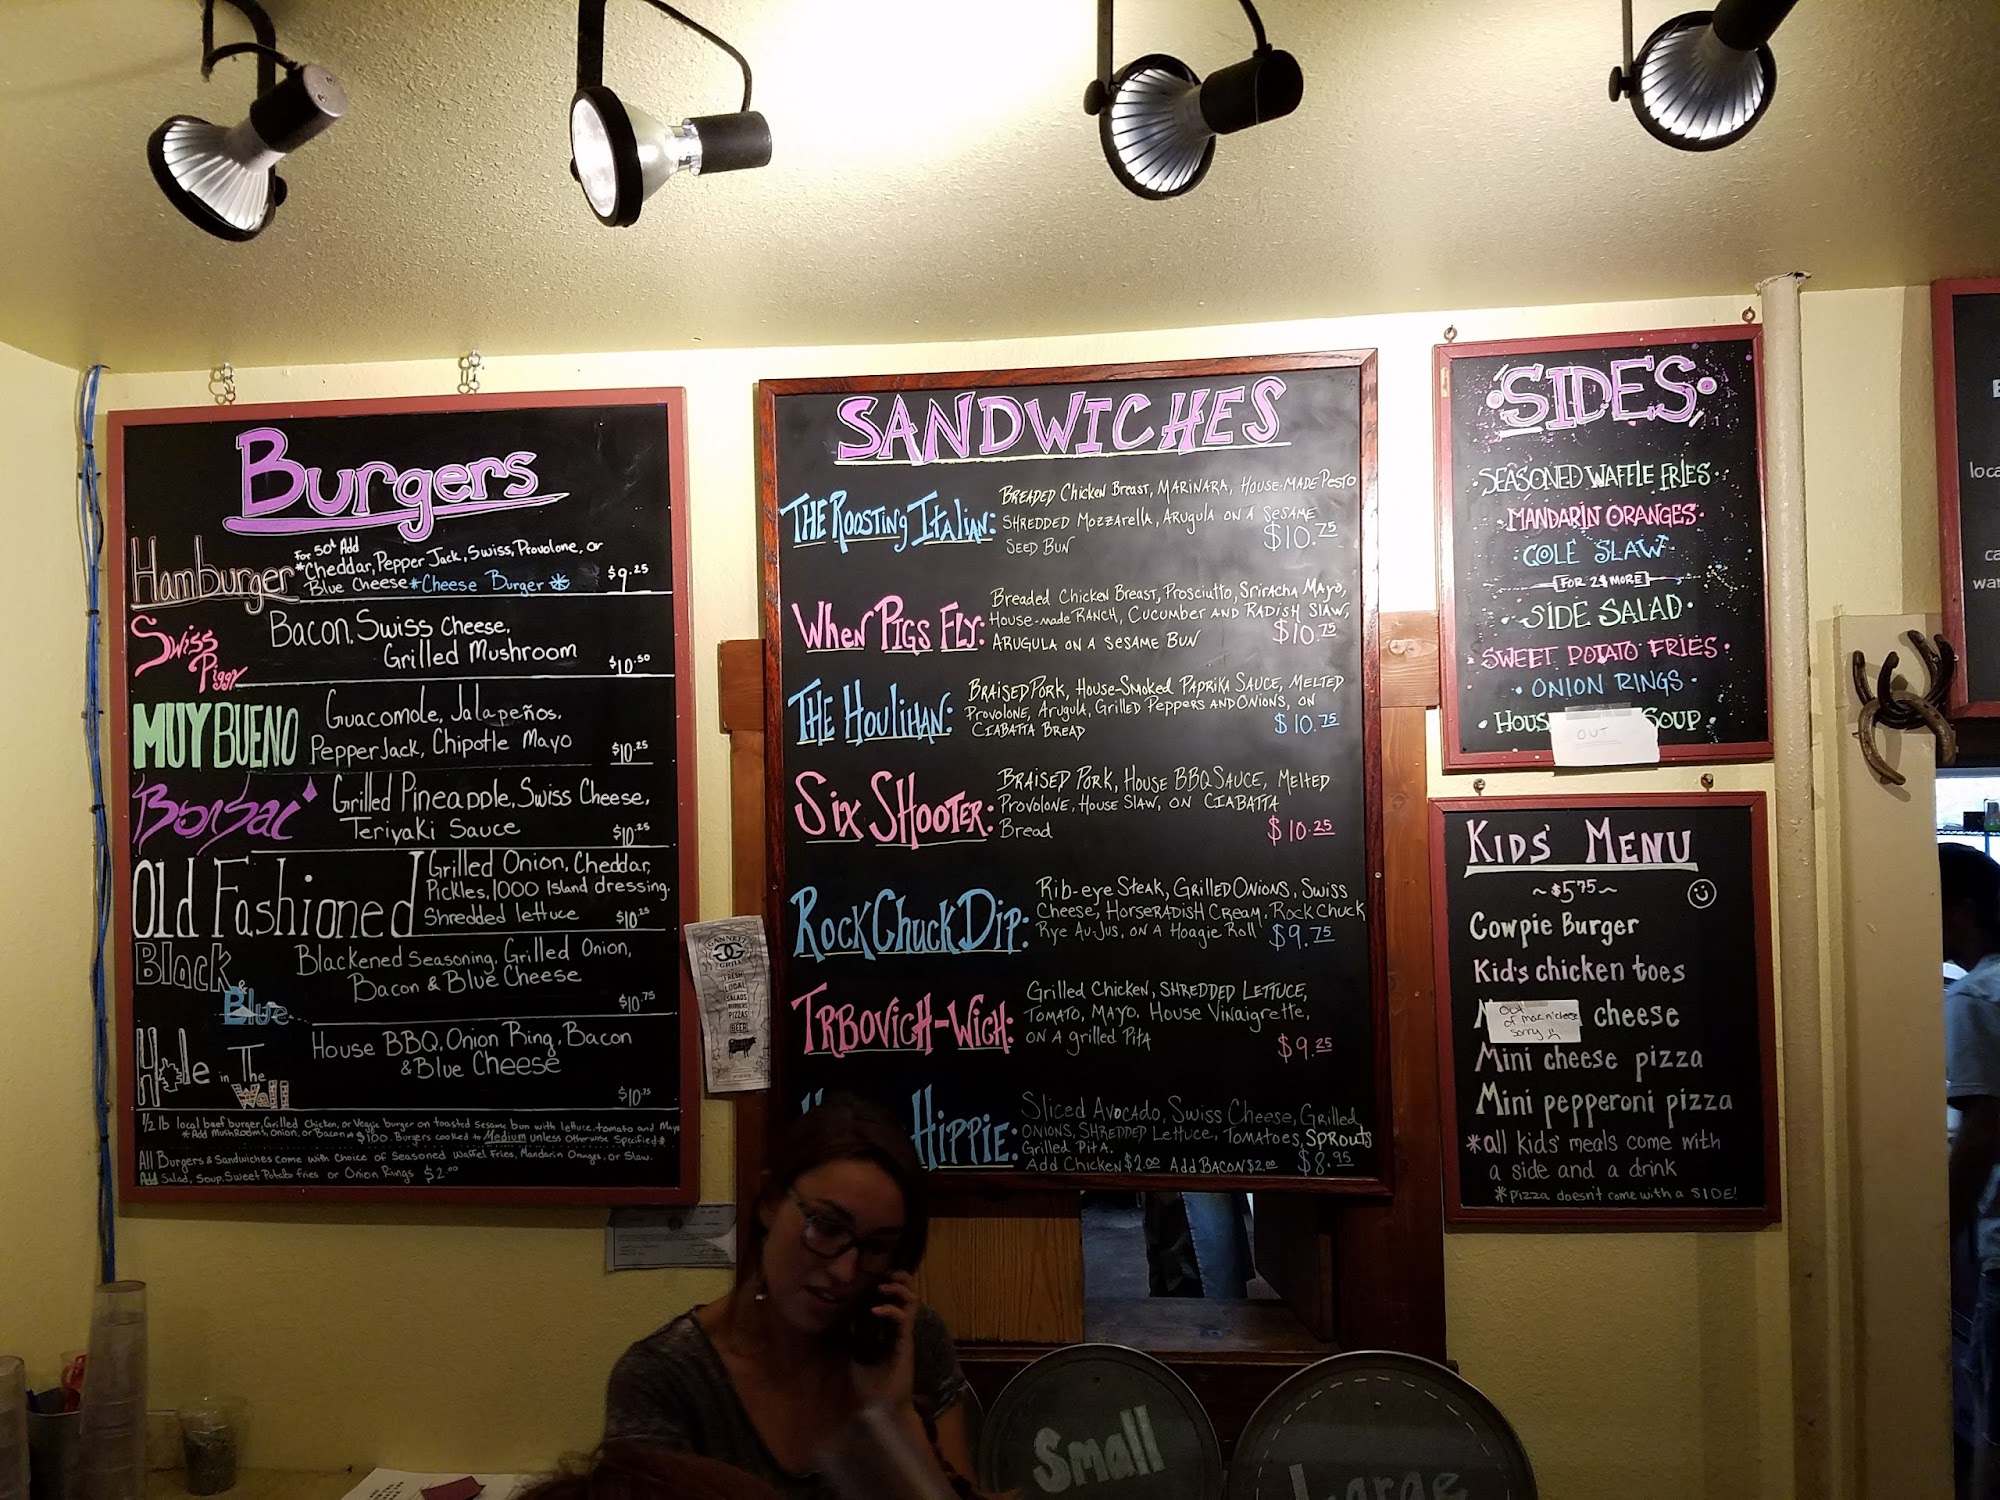 Burgers
Hamburger
For 50¢ Add
*Cheddar, Pepper Jack, Swiss, Provolone, or
Blue Cheese *Cheese Burger*
$9.25
Swiss
Piggy
Bacon, Swiss Cheese,
Grilled Mushroom
$10.50
MUY BUENO
Guacomole, Jalapeños,
Pepper Jack, Chipotle Mayo
$10.25
Grilled Pineapple, Swiss Cheese,
Teriyaki Sauce
$10.25
Old Fashioned
Grilled Onion, Cheddar,
Pickles, 1000 Island dressing,
Shredded lettuce
$10.25
Black &
Blue
Blackened Seasoning, Grilled Onion,
Bacon & Blue Cheese
$10.75
Hole in The
Wall
House BBQ, Onion Ring, Bacon
& Blue Cheese
$10.75
1/2 lb local beef burger, Grilled Chicken, or Veggie burger on toasted sesame bun with lettuce, tomato and Mayo
*Add Mushrooms, Onion, or Bacon $1.00. Burgers cooked to Medium unless otherwise specified*
All Burgers & Sandwiches come with choice of Seasoned Waffel Fries, Mandarin Oranges, or Slaw.
Add Salad, Soup, Sweet Potato fries or Onion Rings $2.00
GANNETT
GG
GRILL
FRESH
LOCAL
SALADS
BURGERS
PIZZAS
BEER
SANDWICHES
THE ROOSTING ITALIAN:
BREADED Chicken Breast, MARINARA, HOUSE-MADE PESTO
SHREDDED MOZZARELLA, ARUGULA ON A SESAME
SEED BUN
$10.75
WHEN PIGS FLY:
Breaded Chicken Breast, Prosciutto, Sriracha Mayo,
House-made RANCH, CUCUMBER AND RADISH SLAW,
ARUGULA ON A SESAME BUN
$10.75
THE HOULIHAN:
BRAISED PORK, HOUSE-SMOKED PAPRIKA SAUCE, MELTED
Provolone, Arugula, Grilled Peppers AND ONIONS, ON
CIABATTA BREAD
$10.75
SIX SHOOTER:
BRAISED PORK, HOUSE BBQ SAUCE, MELTED
PROVOLONE, HOUSE SLAW, ON CIABATTA
Bread
$10.25
ROCK CHUCK DIP:
Rib-eye Steak, GRILLED ONIONS, SWISS
CHEESE, HORSERADISH CREAM, ROCK CHUCK
RYE AU JUS, ON A HOAGIE ROLL
$9.75
TRBOVICH-WICH:
Grilled Chicken, SHREDDED LETTUCE,
TOMATO, MAYO, House Vinaigrette,
ON A grilled PITA
$9.25
HIPPIE:
Sliced Avocado, Swiss Cheese, Grilled
ONIONS, SHREDDED LETTUCE, TOMATOES, SPROUTS
Grilled PITA.
Add Chicken $2.00 Add BACON $2.00
$8.95
SIDES
SEASONED WAFFLE FRIES
MANDARIN ORANGES
COLE SLAW
FOR 2$ MORE
SIDE SALAD
SWEET POTATO FRIES
ONION RINGS
SOUP
OUT
KIDS' MENU
~$5.75~
Cowpie Burger
Kid's chicken toes
cheese
Out
of mac n' cheese
sorry
Mini cheese pizza
Mini pepperoni pizza
*all kids' meals come with
a side and a drink
*pizza doesn't come with a SIDE!
Small
Large